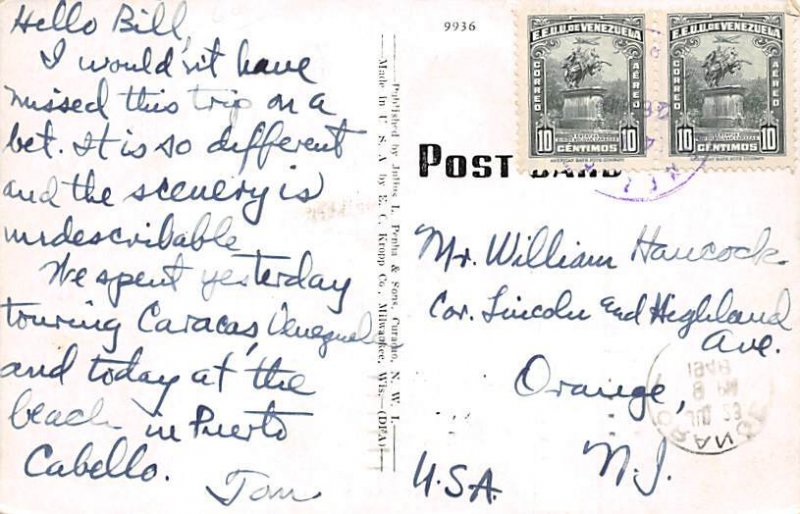 Hello Bill,
I would'nt have
missed this trip on a
bet. It is so different
and the scenery is
indescribable
We spent yesterday
touring Caracas, Venezuela
and today at the
beach in Puerto
Cabello.
Tom
Published by Julius L. Penha & Sons, Curaçao, N. W. I.
Made in U. S. A. by E. C. Kropp Co., Milwaukee, Wis.—(DPA)
9936
POST CARD
E.E.U.U. DE VENEZUELA
CORREO
AEREO
10
10
CÉNTIMOS
AMERICAN BANK NOTE COMPANY
E.E.U.U. DE VENEZUELA
CORREO
AEREO
10
10
CÉNTIMOS
AMERICAN BANK NOTE COMPANY
Mr. William Hancock
Cor. Lincoln and Highland
Ave.
Orange,
N.J.
U.S.A.